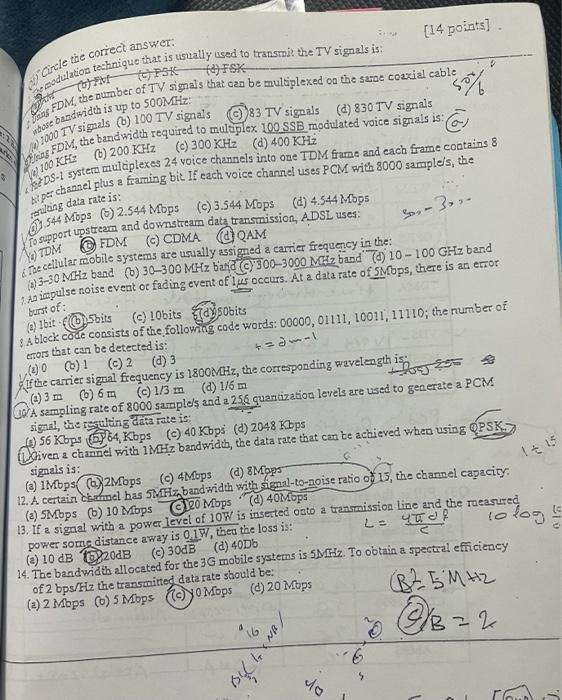 [14 points]
Circle the correct answer:
modulation technique that is usually used to transmit the TV signals is:
(b) FM (c) PSK (d) FSK
Using FDM, the number of TV signals that can be multiplexed on the same coaxial cable
whose bandwidth is up to 500MHz:
(a) 1000 TV signals (b) 100 TV signals (c) 83 TV signals (d) 830 TV signals
Using FDM, the bandwidth required to multiplex 100 SSB modulated voice signals is:
(a) 100 KHz (b) 200 KHz (c) 300 KHz (d) 400 KHz
The DS-1 system multiplexes 24 voice channels into one TDM frame and each frame contains 8
bit per channel plus a framing bit. If each voice channel uses PCM with 8000 sample/s, the
resulting data rate is:
1.544 Mbps (b) 2.544 Mbps (c) 3.544 Mbps (d) 4.544 Mbps
To support upstream and downstream data transmission, ADSL uses:
(a) TDM (b) FDM (c) CDMA (d) QAM
6. The cellular mobile systems are usually assigned a carrier frequency in the:
(a) 3-30 MHz band (b) 30-300 MHz band (c) 300-3000 MHz band (d) 10 - 100 GHz band
7. An impulse noise event or fading event of 1μs occurs. At a data rate of 5Mbps, there is an error
burst of:
(a) 1bit (b) 5bits (c) 10bits (d) 50bits
8. A block code consists of the following code words: 00000, 01111, 10011, 11110; the number of
errors that can be detected is:
(a) 0 (b) 1 (c) 2 (d) 3
If the carrier signal frequency is 1800MHz, the corresponding wavelength is:
(a) 3 m (b) 6 m (c) 1/3 m (d) 1/6 m
10. A sampling rate of 8000 sample/s and a 256 quantization levels are used to generate a PCM
signal, the resulting data rate is:
(a) 56 Kbps (b) 64, Kbps (c) 40 Kbps (d) 2048 Kbps
11. Given a channel with 1MHz bandwidth, the data rate that can be achieved when using QPSK
signals is:
(a) 1Mbps (b) 2Mbps (c) 4Mbps (d) 8Mbps
12. A certain channel has 5MHz bandwidth with signal-to-noise ratio of 15, the channel capacity:
(a) 5Mbps (b) 10 Mbps (c) 20 Mbps (d) 40Mbps
13. If a signal with a power level of 10W is inserted onto a transmission line and the measured
power some distance away is 0.1W, then the loss is:
(a) 10 dB (b) 20dB (c) 30dB (d) 40Db
14. The bandwidth allocated for the 3G mobile systems is 5MHz. To obtain a spectral efficiency
of 2 bps/Hz the transmitted data rate should be:
(a) 2 Mbps (b) 5 Mbps (c) 10 Mbps (d) 20 Mbps
B = 5 MHz
C/B = 2